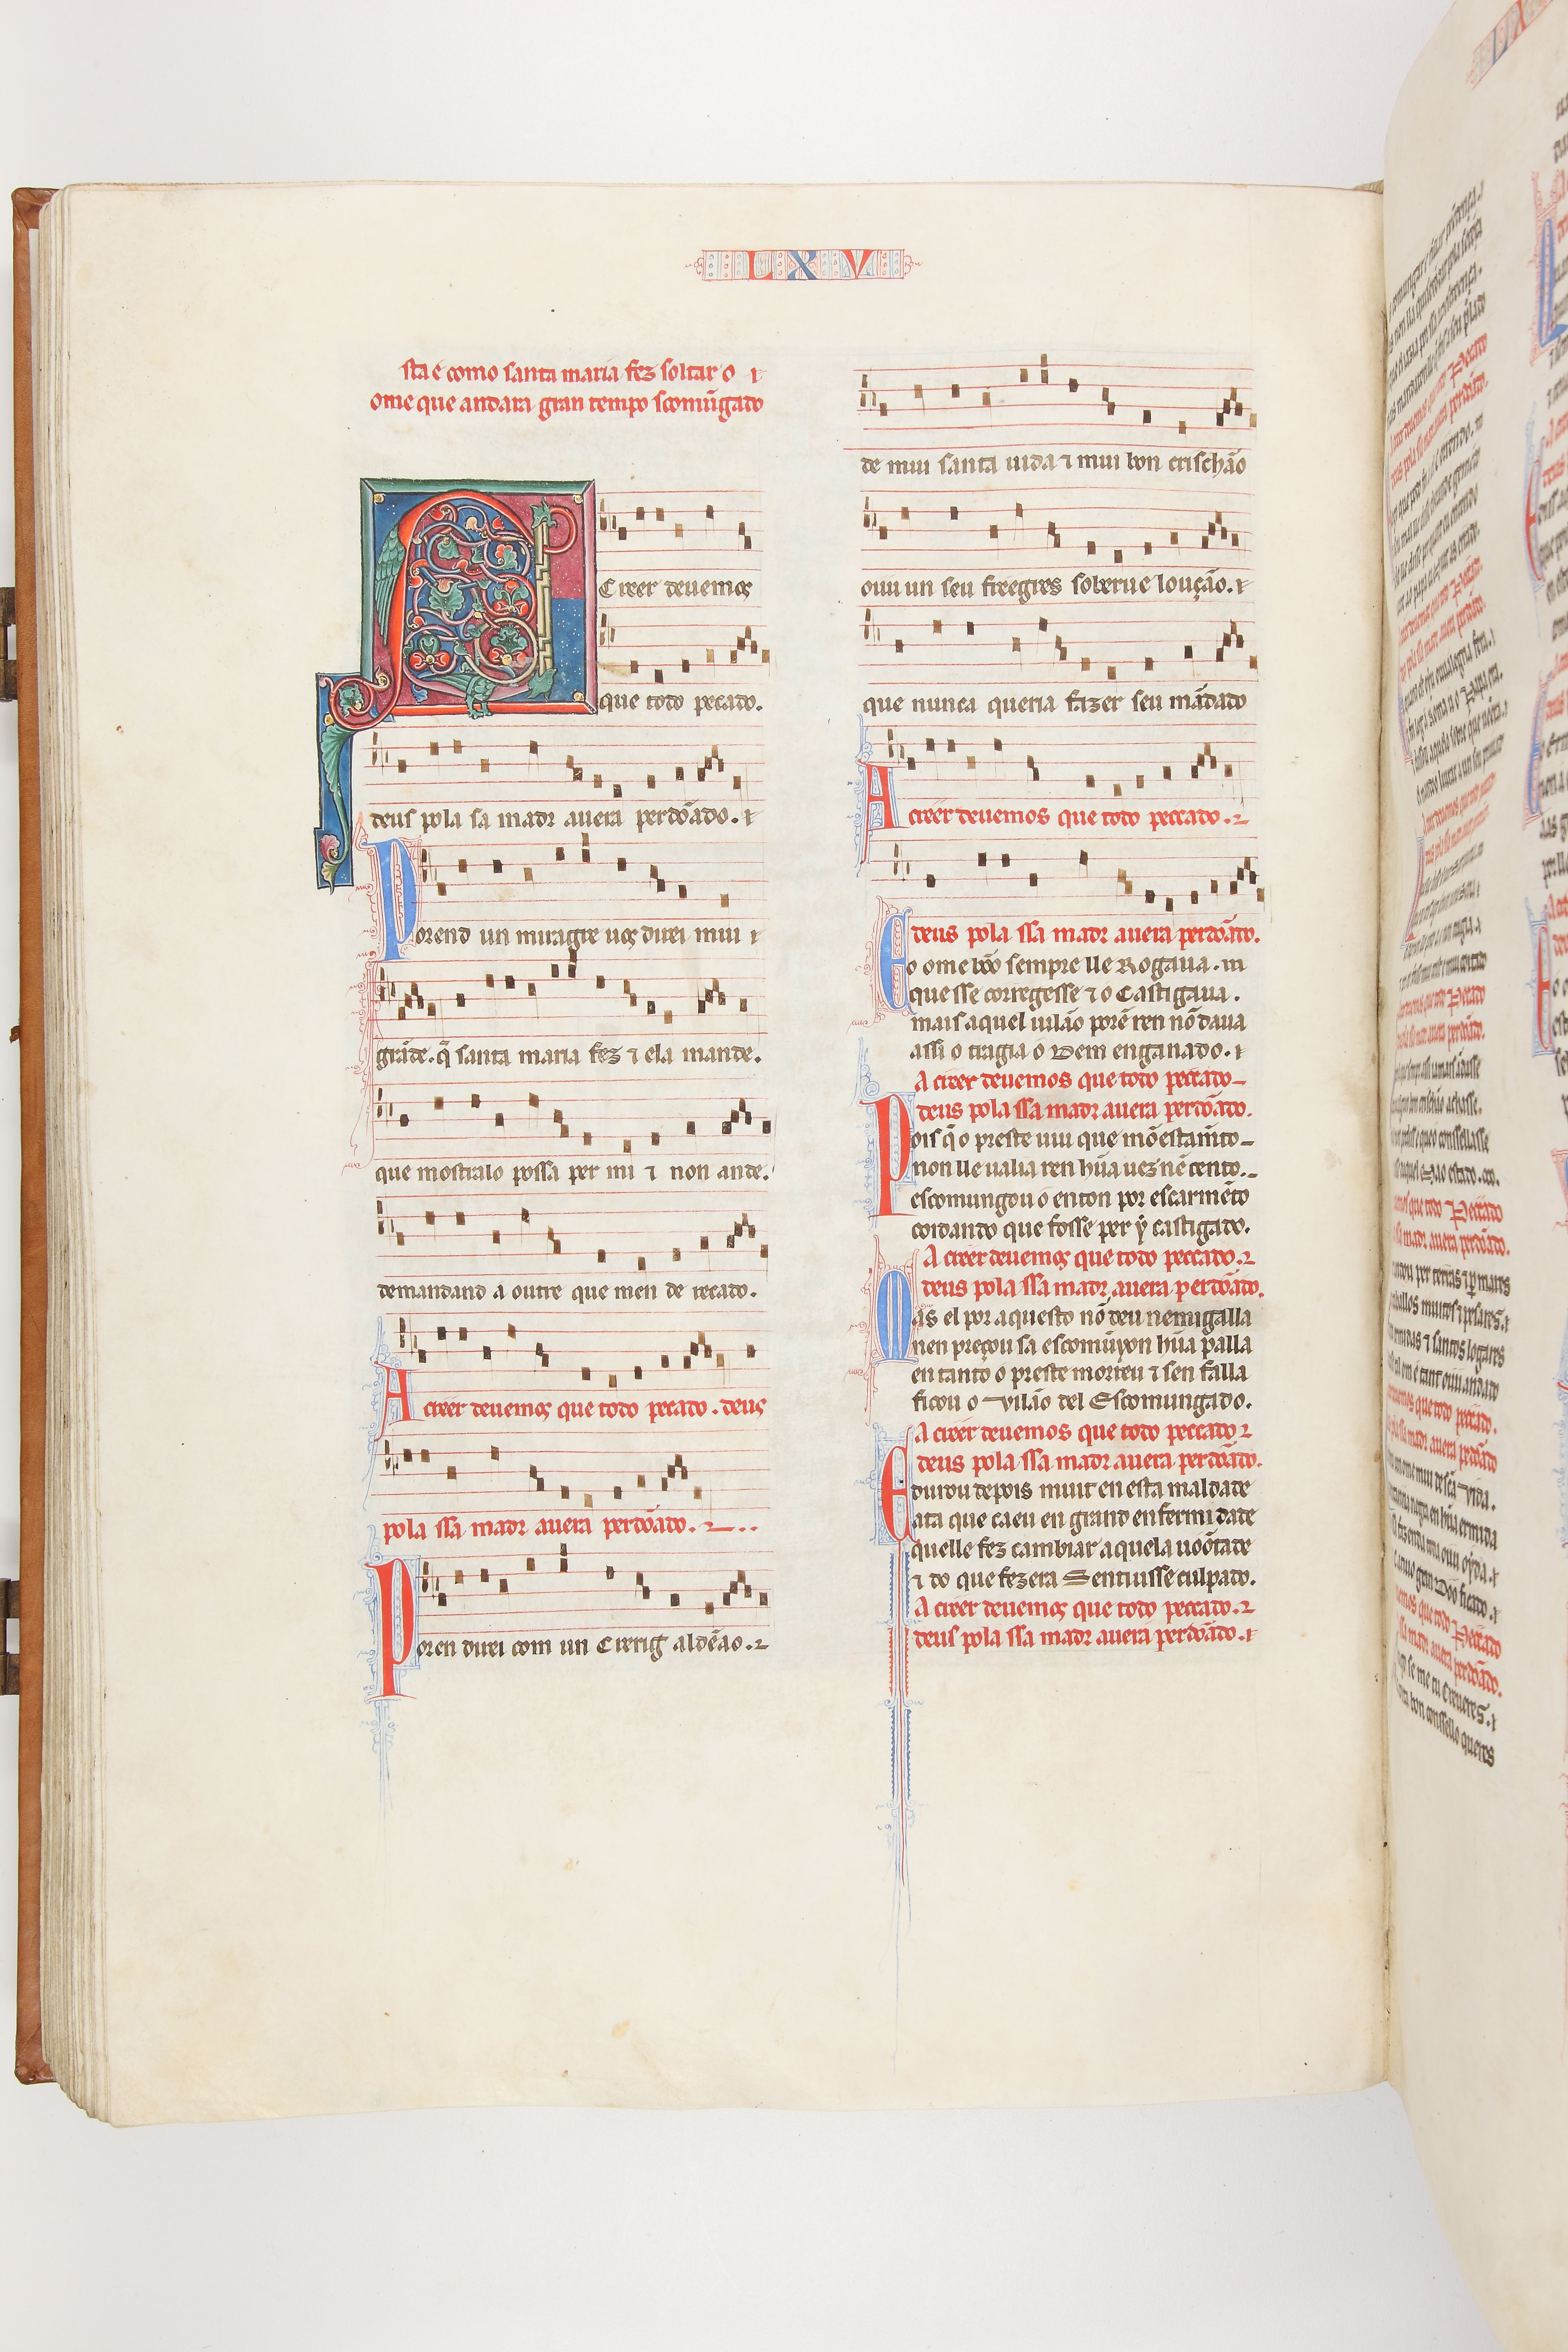 LXV
sta e como santa maria fez soltar o ⁊
ome que andara gran tempo scomũgado
A Creer deuemos
que todo pecado.
deus pola sa madr auera perdõado. ⁊
Porend un miragre uos direi mui ⁊
grãde. q̃ santa maria fez ⁊ ela mande.
que mostralo possa per mi ⁊ non ande.
demandand a outre que men de recado.
A creer deuemos que todo pecado. deus
pola ssa madr auera perdõado. ⁊
Poren direi com un Crerig aldeão. ⁊
de mui santa uida ⁊ mui bon crischão
ouu un seu freegres soberue loução. ⁊
que nunca queria fazer seu mãdado
A creer deuemos que todo peccado. ⁊
deus pola ssa madr auera perdõado.
Eo ome bõo sempre lle Rogaua. m
que sse corregesse ⁊ o Castigaua.
mais aquel uilão porẽ ren nõ daua
assi o tragia o Dem enganado. ⁊
A creer deuemos que todo peccado
deus pola ssa madr auera perdõado.
Pois q̃ o preste uiu que mõestam̃to
non lle ualia ren hũa uez nẽ cento.
escomungou o enton por escarmẽto
coidando que fosse per ẏ castigado.
A creer deuemos que todo peccado. ⁊
deus pola ssa madr auera perdõado.
Mas el por aquesto nõ deu nemigalla
nen preçou sa escomũyon hũa palla
en tanto o preste morreu ⁊ sen falla
ficou o vilão del Escomungado.
A creer deuemos que todo peccado ⁊
deus pola ssa madr auera perdõado.
E durou depois muit en esta maldade
ata que caeu en grand enfermidade
quelle fez cambiar aquela uoõtade
⁊ do que fezera Sentiuisse culpado.
A creer deuemos que todo peccado. ⁊
deus pola ssa madr auera perdõado. ⁊